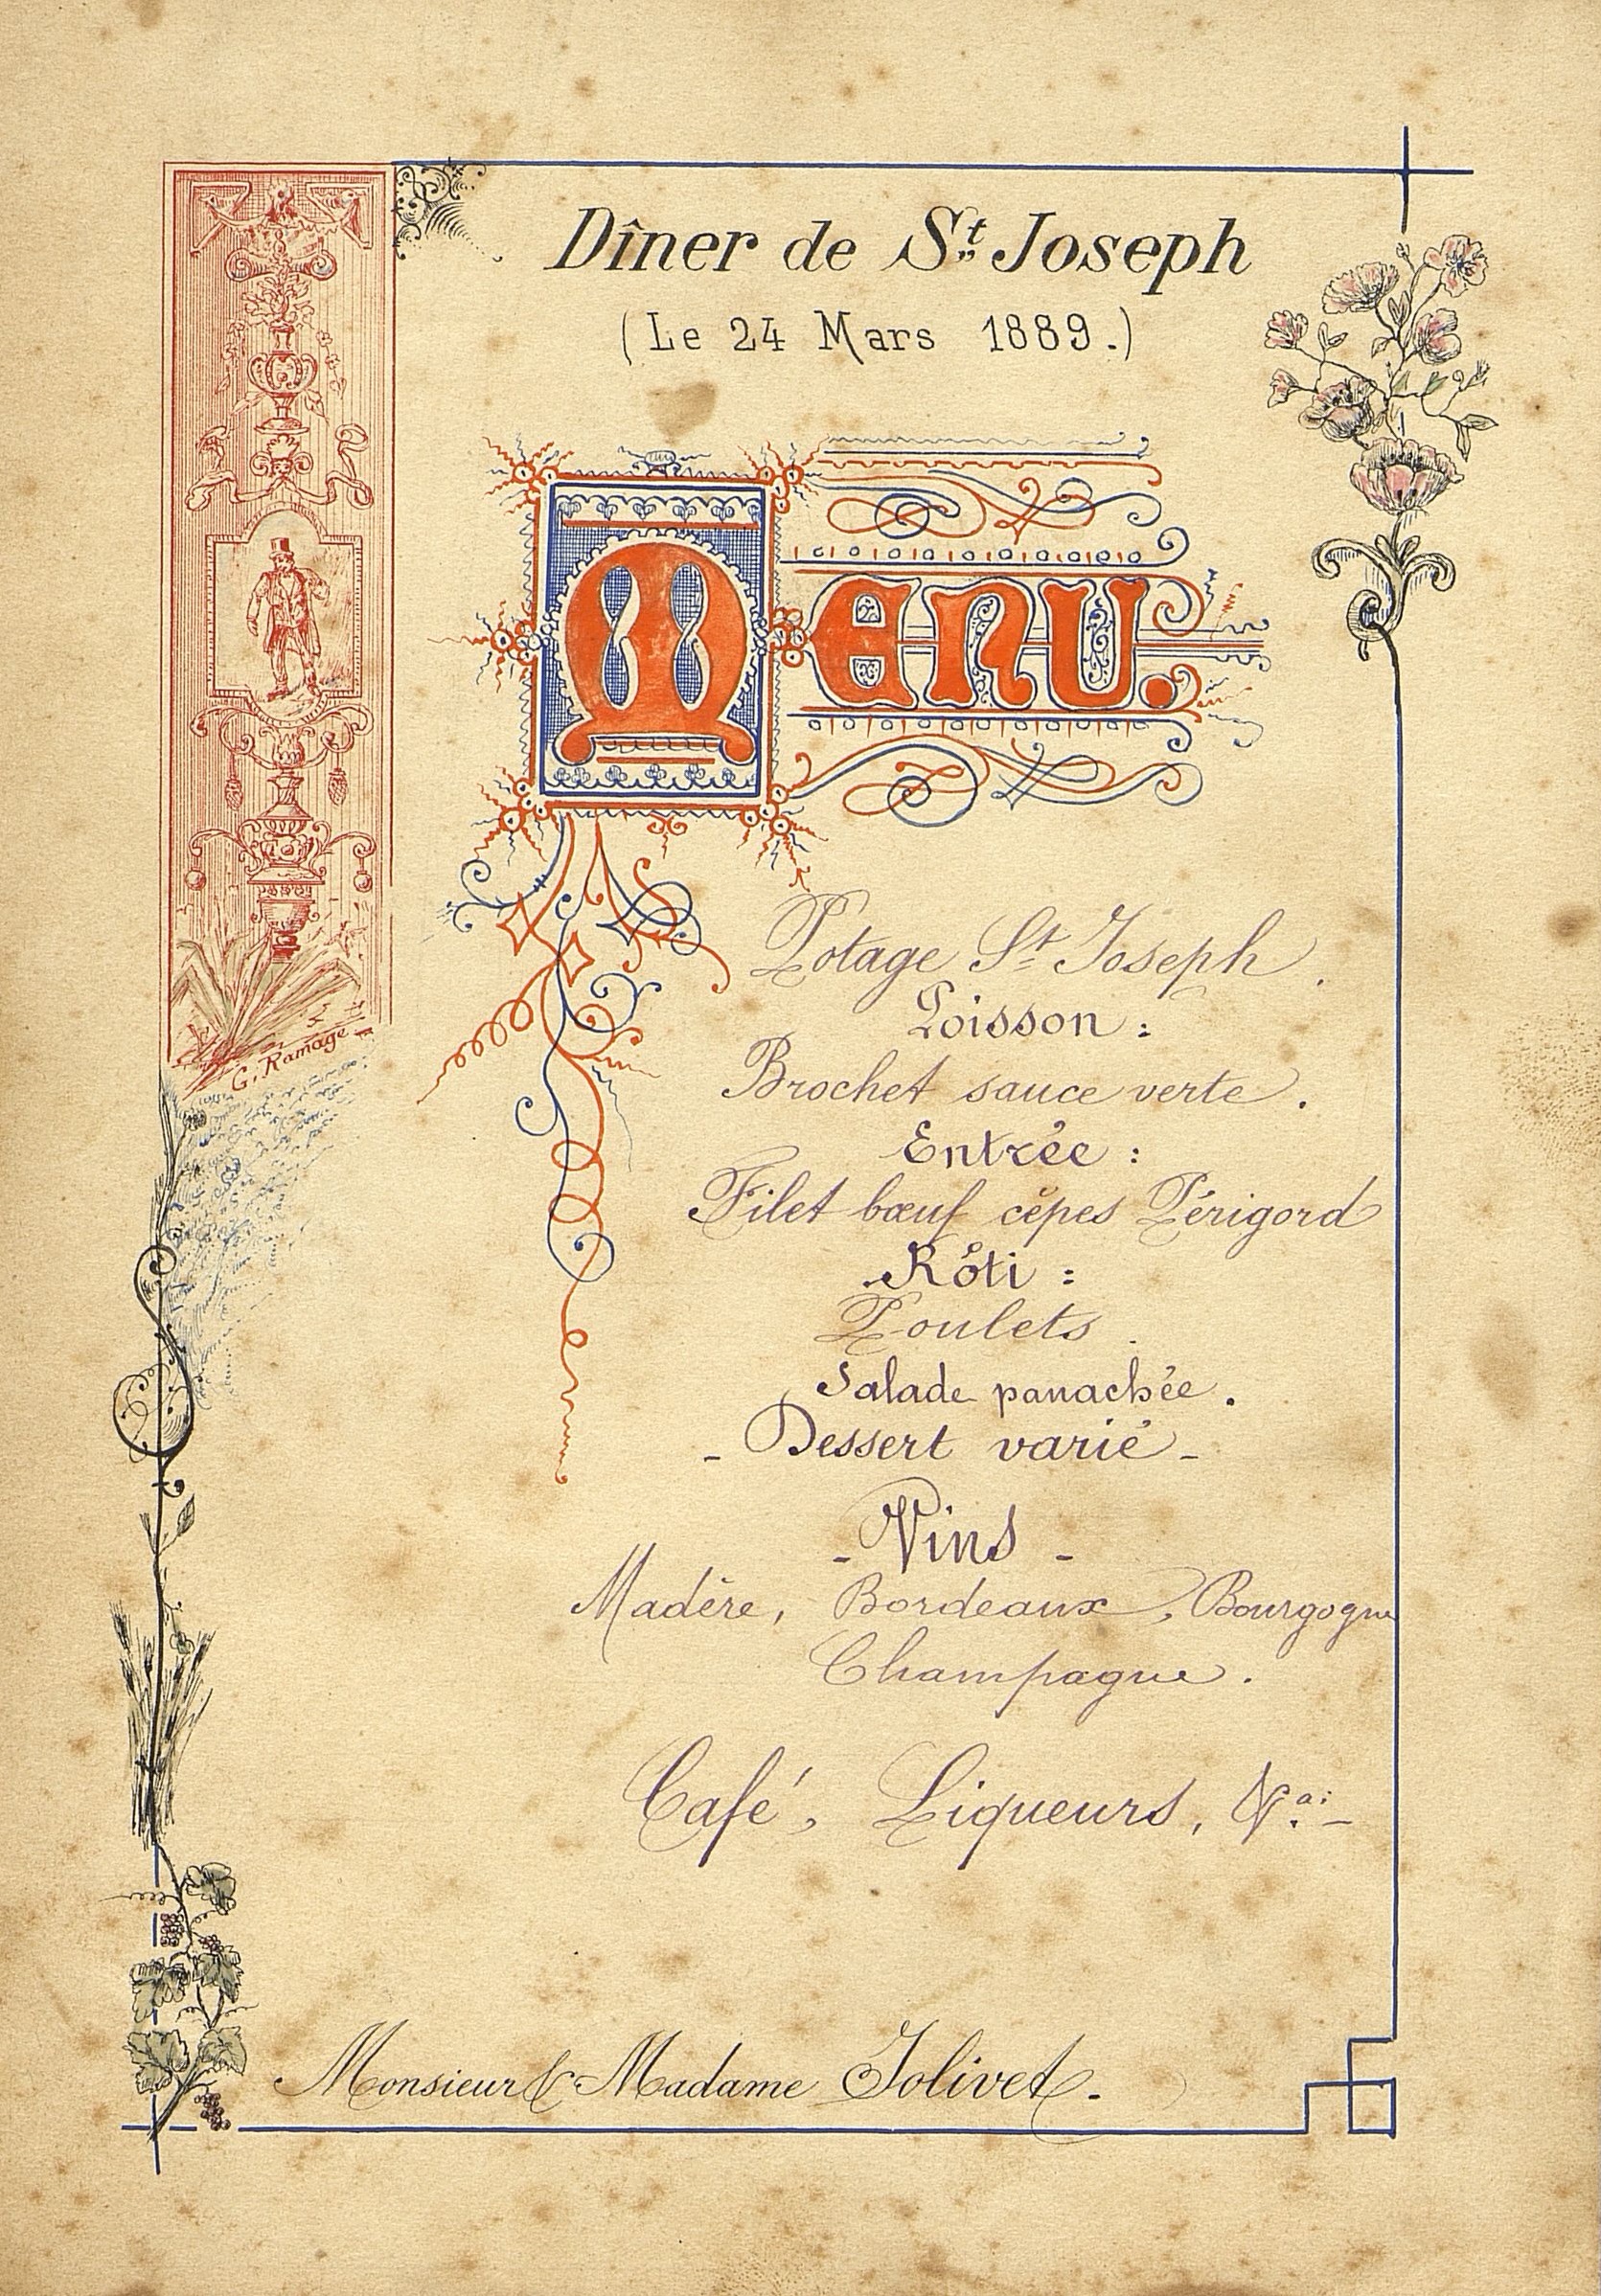 Dîner de St Joseph
(Le 24 Mars 1889.)
Menu.
Potage St Joseph.
Poisson :
Brochet sauce verte.
Entrée :
Filet bœuf cêpes Périgord
Rôti :
Poulets.
Salade panachée.
- Dessert varié -
- Vins -
Madère, Bordeaux, Bourgogne
Champagne.
Café, Liqueurs, &a: -
G. Ramage
Monsieur & Madame Jolivet.